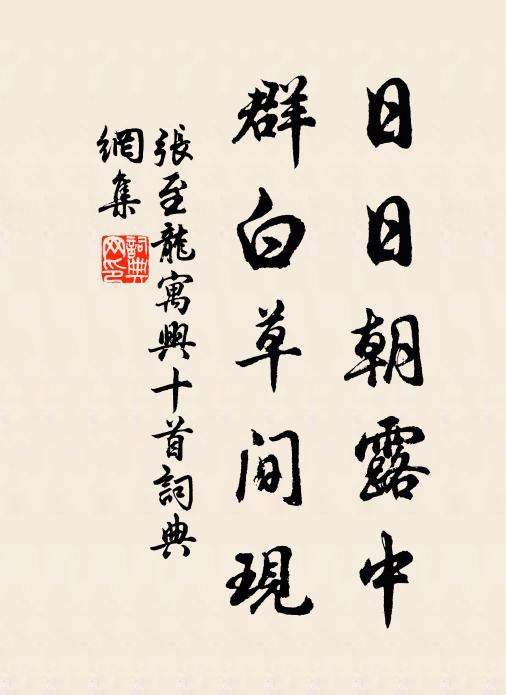 日日朝露中
群白草間現
張至龍寓興十首詞典
網集
詞典
网印